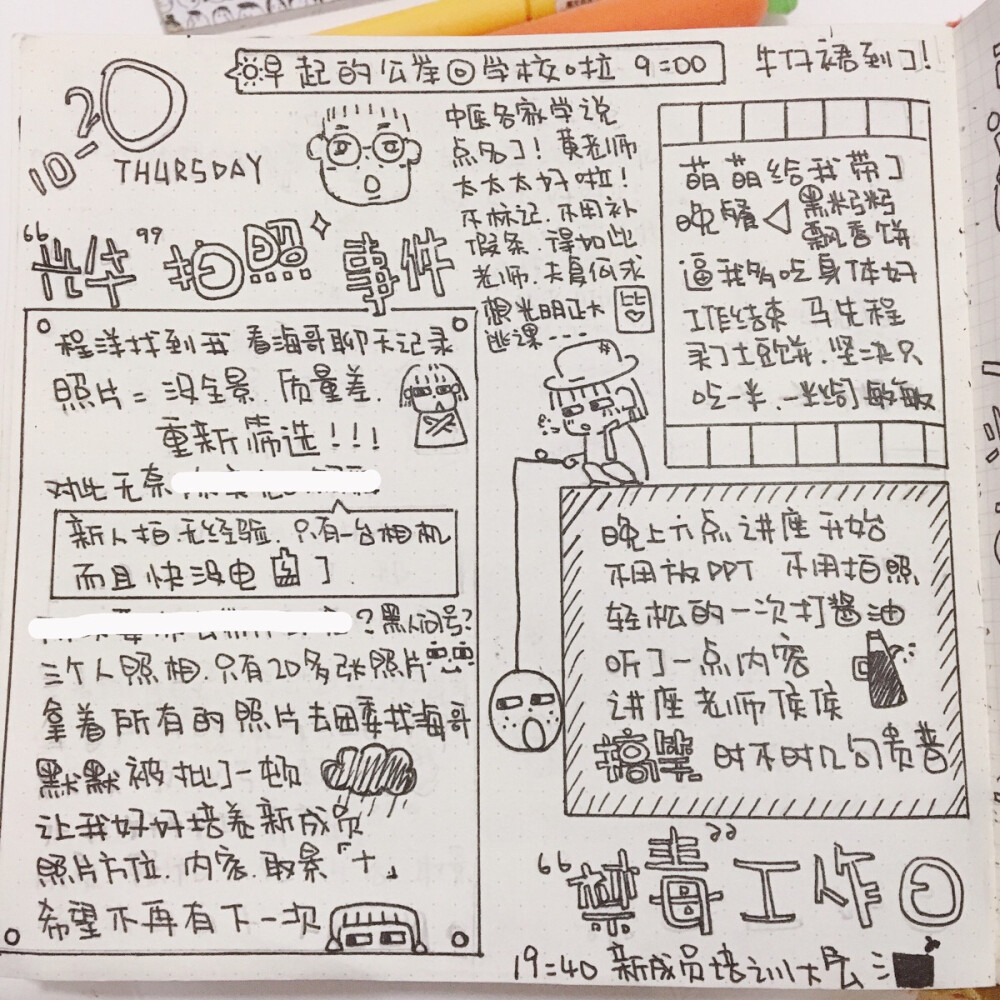 早起的公举回学校啦 9:00
牛仔裙到了!
10-20
THURSDAY
中医各家学说
点名了! 黄老师
太太太好啦!
不标记.不用补
假条.得如此
老师.夫复何求
想光明正大
逃课---
萌萌给我带了
晚餐
黑籽籽
飘香饼
逼我多吃身体好
工作结束 马先程
买了土豆饼.坚决只
吃一半.一半给敏敏
“光华”拍照事件
程洋找到我 看海哥聊天记录
照片=没全景.质量差.
重新筛选!!!
对此无奈
新人拍.无经验.只有一台相机
而且快没电了.
?黑人问号?
三个人照相.只有20多张照片
拿着所有的照片去团委找海哥
默默被批了一顿
让我好好培养新成员
照片方位.内容.取景「十」
希望不再有下一次
晚上六点讲座开始
不用放PPT 不用拍照
轻松的一次打酱油
听了一点内容
讲座老师侯侯
搞笔 时不时几句贵普
“禁毒”工作日
19:40 新成员培训大会